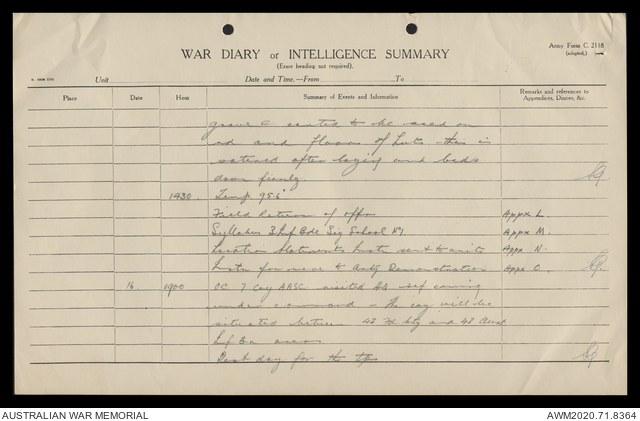 Army Form C. 2118
(adapted.)
WAR DIARY or INTELLIGENCE SUMMARY
(Erase heading not required).
Unit Date and Time.—From To
Place Date Hour Summary of Events and Information Remarks and references to Appendices, Diaries, &c.
to be used on
and floors of huts this is
after laying and beds
down firmly
1430 Temp 95.6°
Field Return of offrs Appx L.
Syllabus 3 Inf Bde Sig School No 1 Appx M.
Location Statement, Instn sent to units Appx N.
Instn for move to Demonstration Appx O.
16 1900 OC 7 Coy AASC visited HQ ref coming
under command - The coy will be
situated between 43 and 48 Aust
Inf Bn areas
Rest day for the tps
AUSTRALIAN WAR MEMORIAL
AWM2020.71.8364